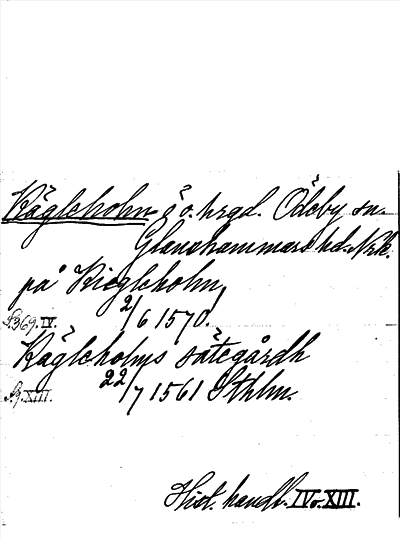 Kägleholm ö o. hrgd. Ödeby sn.
Glanshammars hd. Nrk.
på Kiegleholm,
2/6 1570.
S. 369. IV.
Kägleholms sätegårdh
22/7 1561 Sthlm.
XIII.
Hist. handl. IV o. XIII.